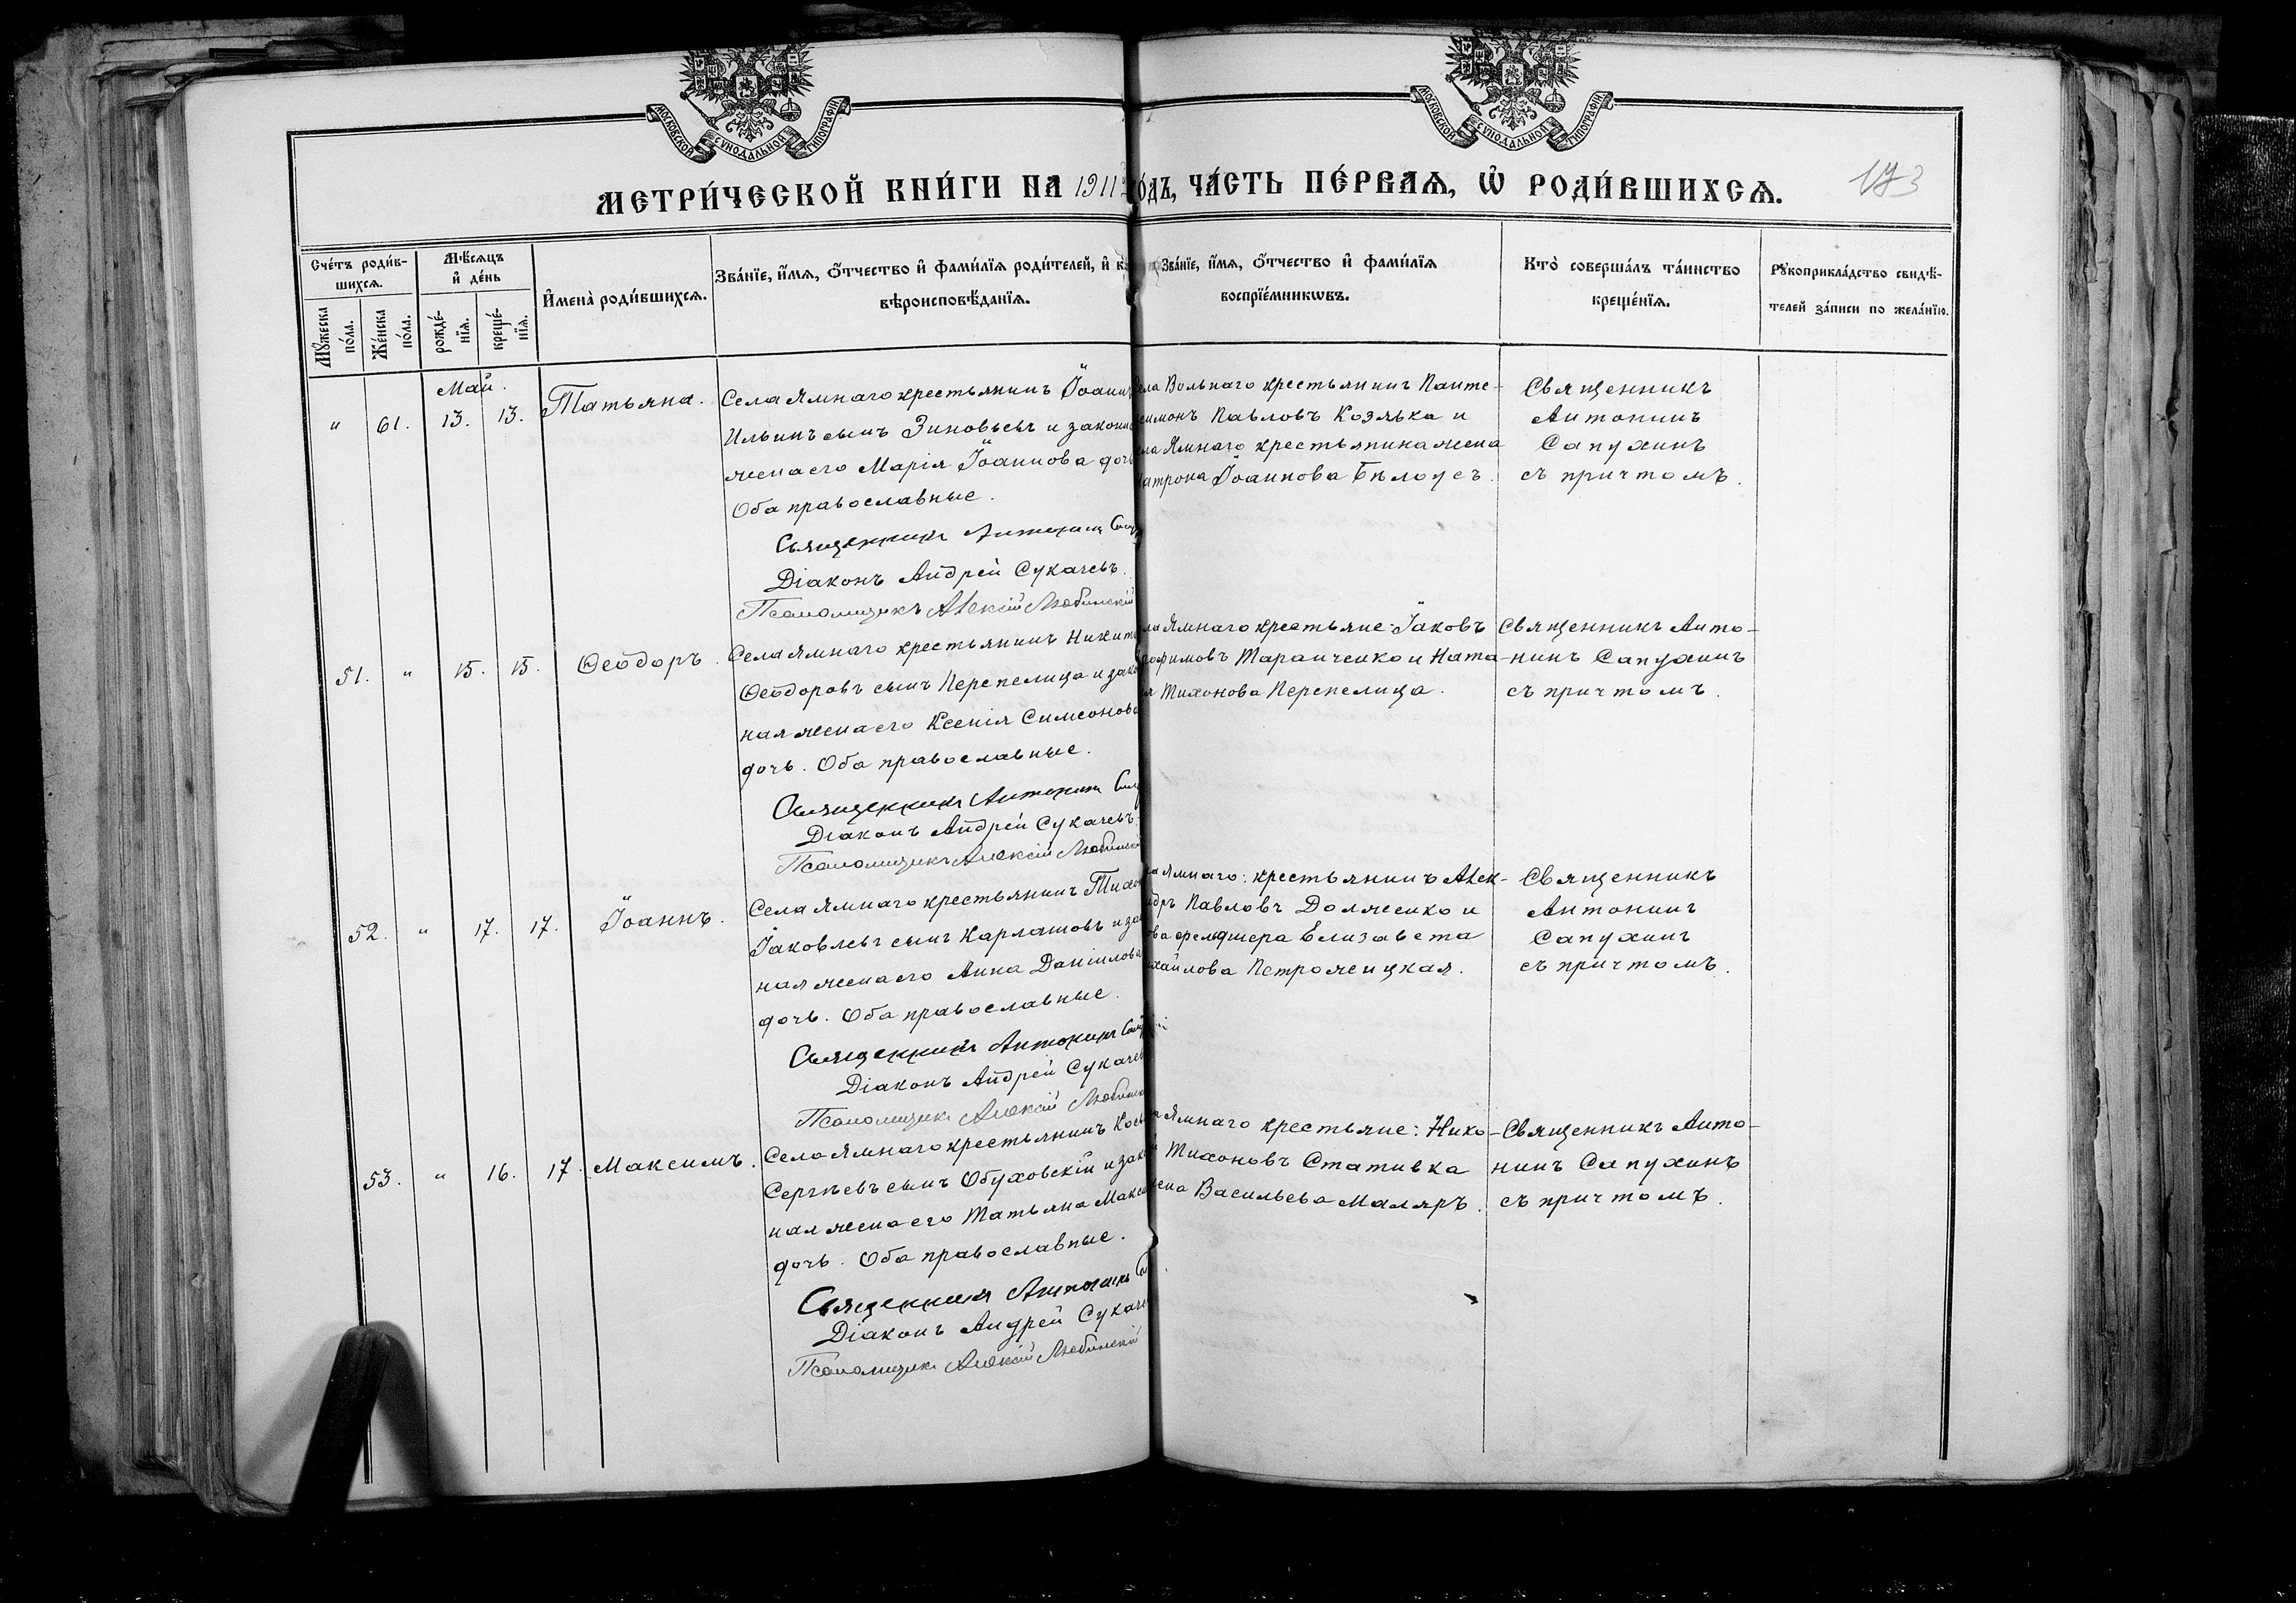 МОСКОВСКОЙ СѴНОДАЛЬНОЙ ТИПОГРАФІИ
МОСКОВСКОЙ СѴНОДАЛЬНОЙ ТИПОГРАФІИ
МЕТРИ́ЧЕСКОЙ КНИ́ГИ НА 1911 го́дъ, ЧА́СТЬ ПЕ́РВАѦ, Ѡ҆ РОДИ́ВШИХСѦ.
173
Сче́тъ роди́в-
шихсѧ.
Мꙋ́жеска по́ла.
Же́нска по́ла.
Мѣ́сѧцъ
и҆ де́нь
рожде́-
нїѧ.
креще́-
нїѧ.
И҆мена̀ роди́вшихсѧ.
Зва́нїе, и҆́мѧ, ѻ҆́тчество и҆ фами́лїѧ роди́телей, и҆
вѣроисповѣ́данїѧ.
Зва́нїе, и҆́мѧ, ѻ҆́тчество и҆ фами́лїѧ
воспрїе́мникѡвъ.
Кто̀ соверша́лъ та́инство
креще́нїѧ.
Рꙋкоприкла́дство свидѣ́-
телей за́писи по жела́нїю.
Май.
" 61. 13. 13. Татьяна.
Села Ямнаго крестьянинъ Іоаннъ
Ильинъ сынъ Зиновьевъ и законн
жена его Марія Іоаннова дочь
Оба православные.
Священникъ Антонинъ
Діаконъ Андрей Сукачевъ.
Псаломщикъ Алексій Любинскій
ела Вольнаго крестьянинъ Панте-
леимонъ Павловъ Козявка и
ела Ямнаго крестьянина жена
атрона Іоаннова Бѣлоусъ.
Священникъ
Антонинъ
Сапухинъ
съ причтомъ.
51. " 15. 15. Ѳеодоръ.
Села Ямнаго крестьянинъ Никита
Ѳеодоровъ сынъ Перепелица и зако
ная жена его Ксенія Симеонова
дочь. Оба православные.
Священникъ Антонинъ
Діаконъ Андрей Сукачевъ.
Псаломщикъ Алексій Любинскій
ла Ямнаго крестьяне: Іаковъ
рофимовъ Таранченко и Ната-
я Тихонова Перепелица.
Священникъ Анто-
нинъ Сапухинъ
съ причтомъ.
52. " 17. 17. Іоаннъ.
Села Ямнаго крестьянинъ Тихо
Іаковлевъ сынъ Карлашовъ и за
ная жена его Анна Даніилова
дочь. Оба православные.
Священникъ Антонинъ
Діаконъ Андрей Сукачев
Псаломщикъ Алексій Любинск
а Ямнаго: крестьянинъ Алек-
ндръ Павловъ Долженко и
ова фельдшера Елизавета
хайлова Петроженцкая.
Священникъ
Антонинъ
Сапухинъ
съ причтомъ.
53. " 16. 17. Максимъ.
Села Ямнаго крестьянинъ Косм
Сергѣевъ сынъ Обуховскій и зако
ная жена его Татьяна Макси
дочь. Оба православные.
Священникъ Антонинъ
Діаконъ Андрей Сукаче
Псаломщикъ Алексій Любинскій
а Ямнаго крестьяне: Нико-
й Тихоновъ Стативка
лена Васильева Маляръ.
Священникъ Анто-
нинъ Сапухинъ
съ причтомъ.